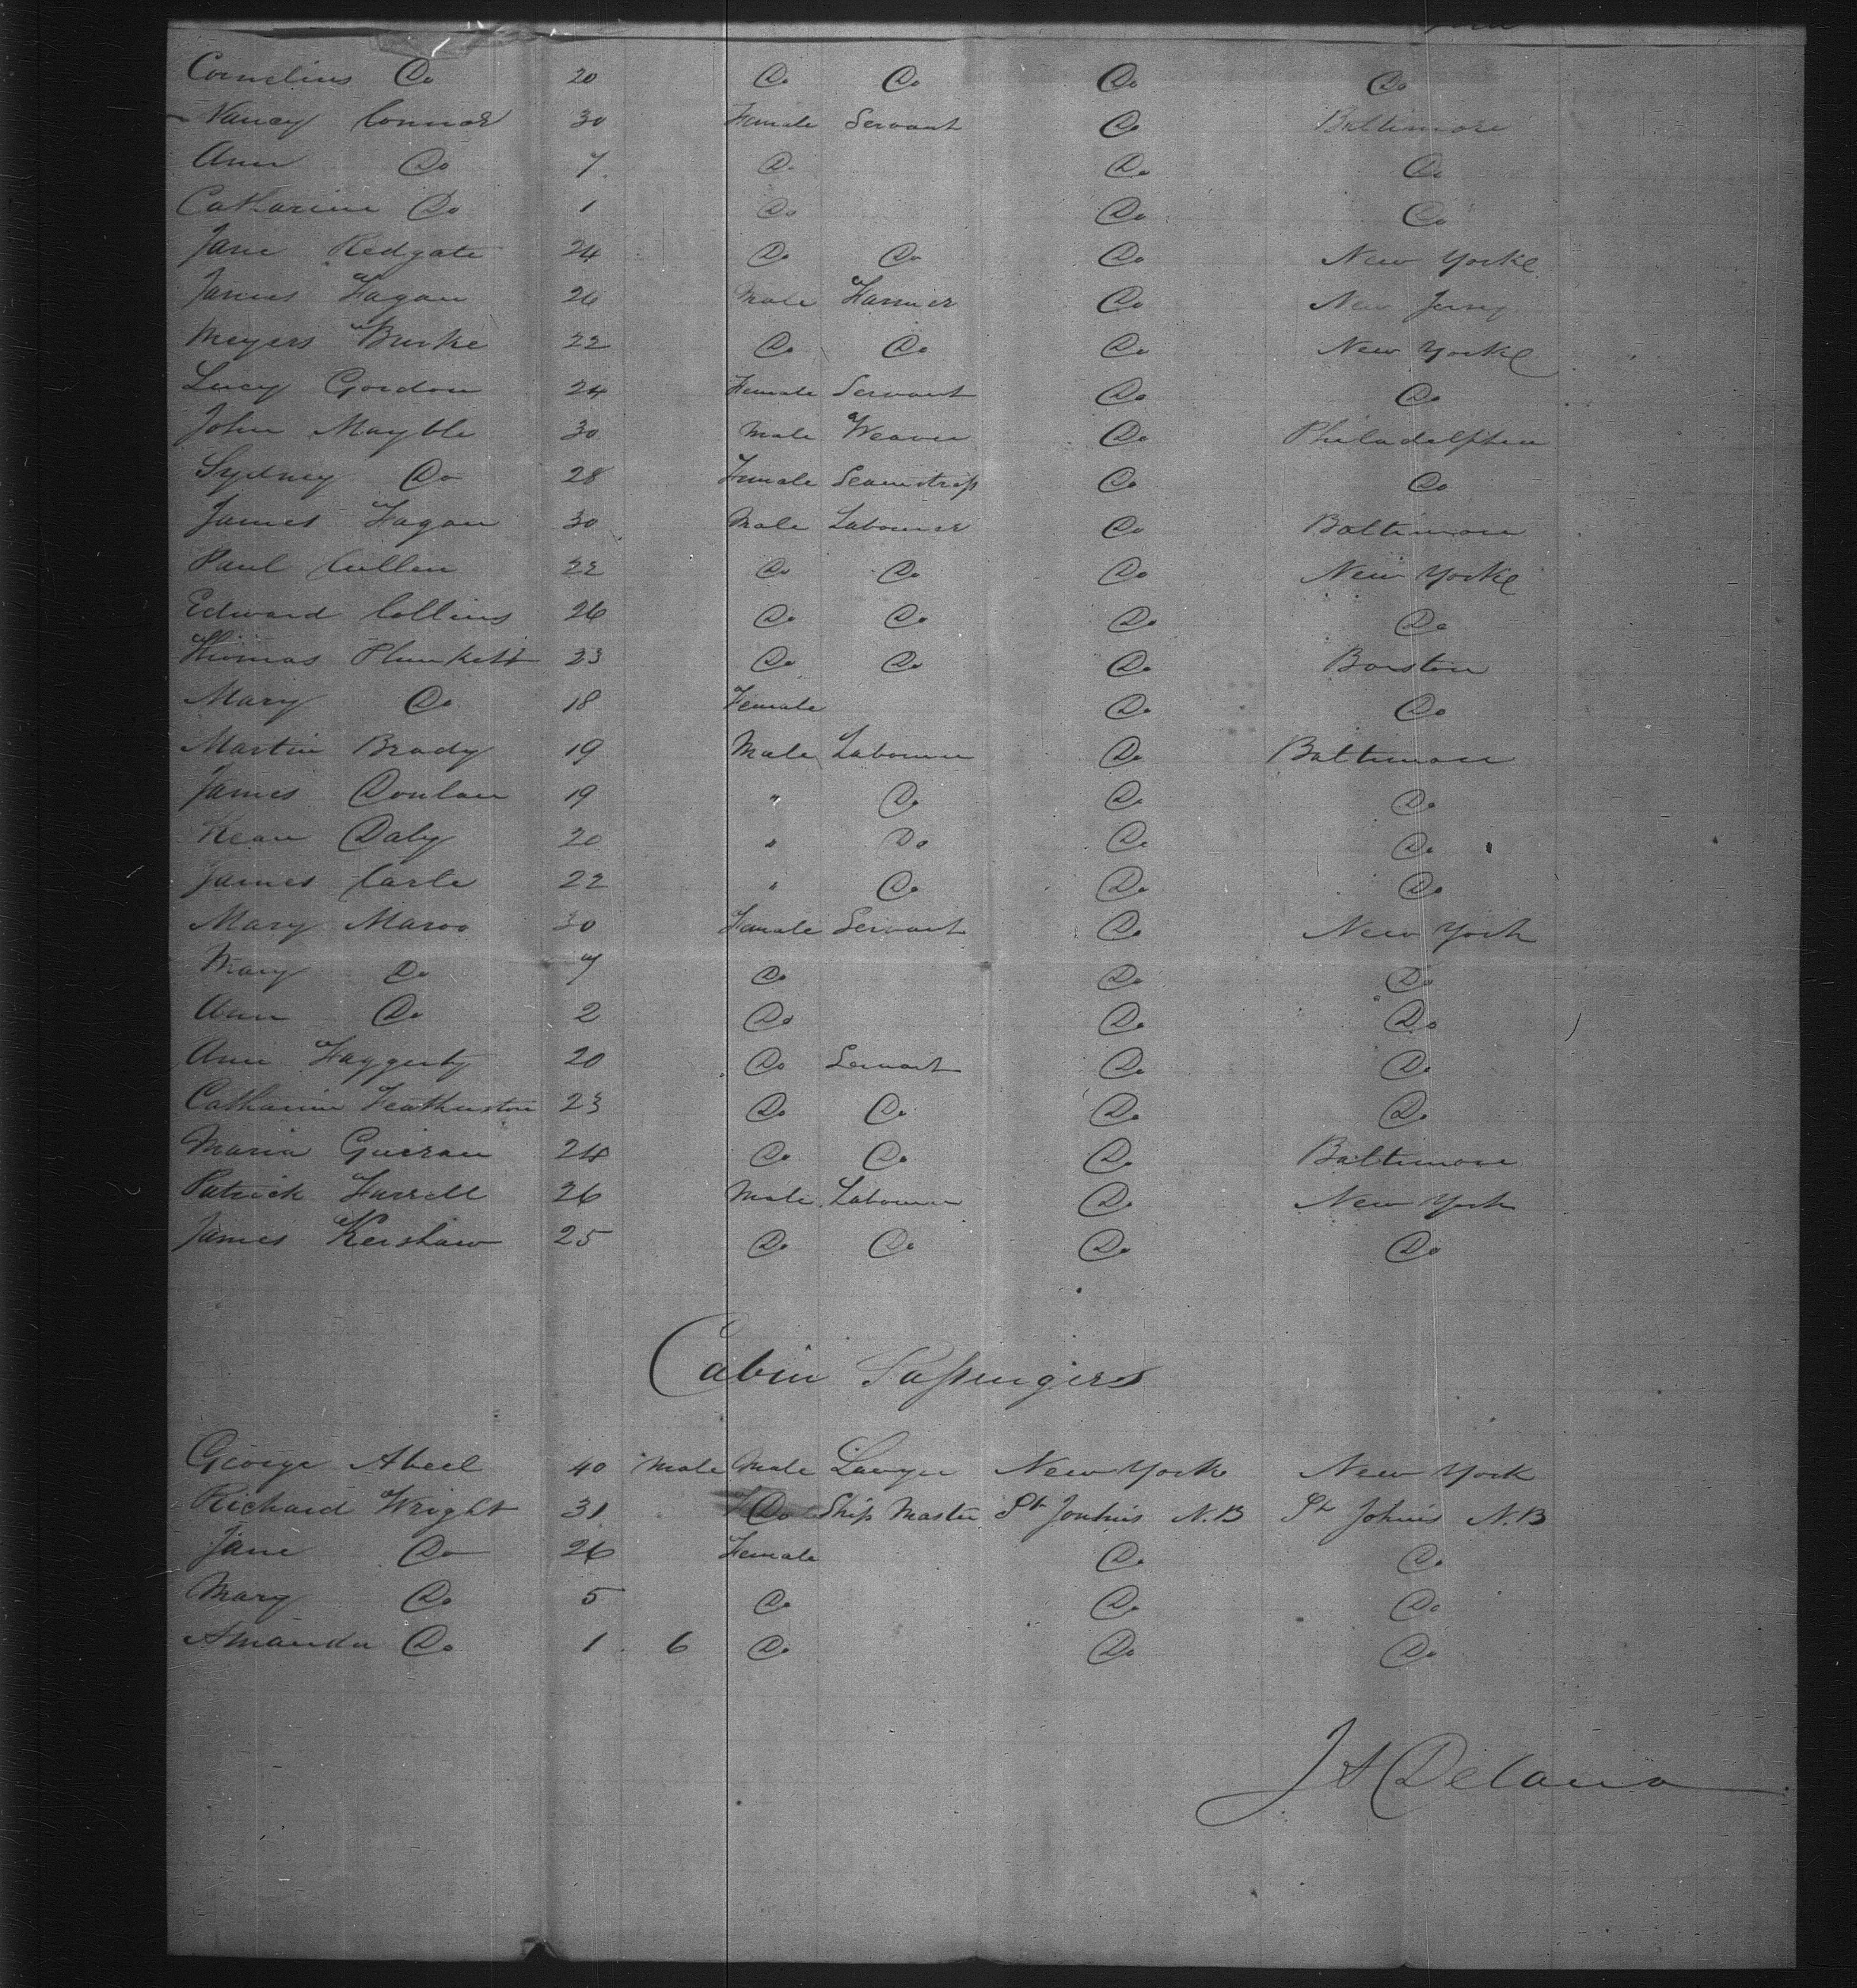 Cornelius Do 20 Do Do Do Do
Nancy Connor 30 Female Servant Do Baltimore
Ann Do 7 Do Do Do
Catharine Do 1 Do Do Do
Jane Redgate 24 Do Do Do New Yorke
James Fagan 26 Male Farmer Do New Jersy
Meyers Burke 22 Do Do Do New Yorke
Lucy Gordon 24 Female Servant Do Do
John Mayble 30 Male Weaver Do Philadelphia
Sydney Do 28 Female Seamstress Do Do
James Fagan 30 Male Labourer Do Baltimore
Paul Cullen 22 Do Do Do New Yorke
Edward Collins 26 Do Do Do Do
Thomas Plunkett 23 Do Do Do Borston
Mary Do 18 Female Do Do
Martin Brady 19 Male Labourer Do Baltimore
James Donlan 19 " Do Do Do
Kean Daly 20 " Do Do Do
James Carle 22 " Do Do Do
Mary Maroo 30 Female Servant Do New York
Mary Do 7 Do Do Do
Ann Do 2 Do Do Do
Ann Faggerty 20 Do Servant Do Do
Catharine Featherston 23 Do Do Do Do
Maria Guieran 24 Do Do Do Baltimore
Patrick Farrell 26 Male Labourer Do New York
James Kershaw 25 Do Do Do Do
Cabin Passengers
George Abeel 40 Male Male Lawyer New York New York
Richard Wright 31 Do Ship Master St Jonhn's N.B St John's N.B
Jane Do 26 Female Do Do
Mary Do 5 Do Do Do
Amanda Do 1 6 Do Do Do
J A Delano